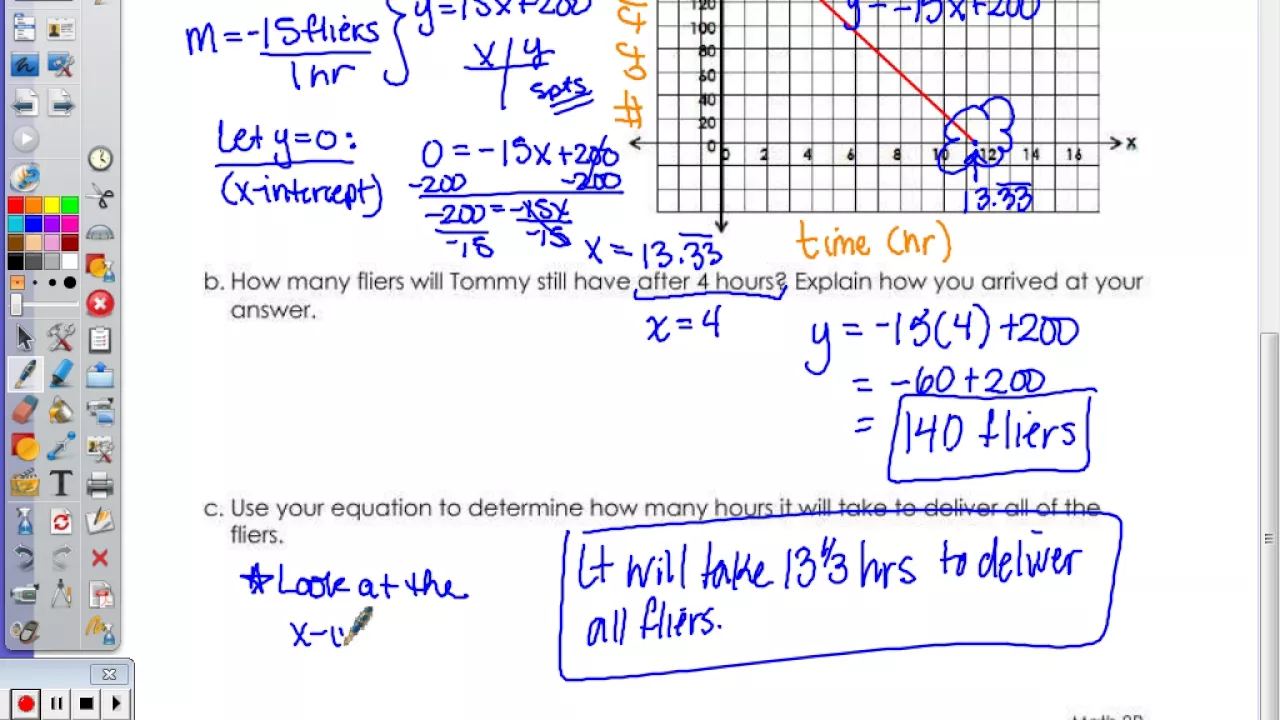 y=15x+200
m = -15 fliers
1 hr
x y
5pts
120
100
80
60
40
20
0
y = -15x+200
# of
0 2 4 6 8 10 12 14 16
x
13.33
time (hr)
Let y=0:
(x-intercept)
0 = -15x+200
-200 -200
-200 = -15x
-15 -15
x = 13.33
b. How many fliers will Tommy still have after 4 hours? Explain how you arrived at your
answer.
x = 4
y = -15(4) +200
= -60 +200
= 140 fliers
c. Use your equation to determine how many hours it will take to deliver all of the
fliers.
It will take 13 1/3 hrs to deliver
all fliers.
*Look at the
x-i
T